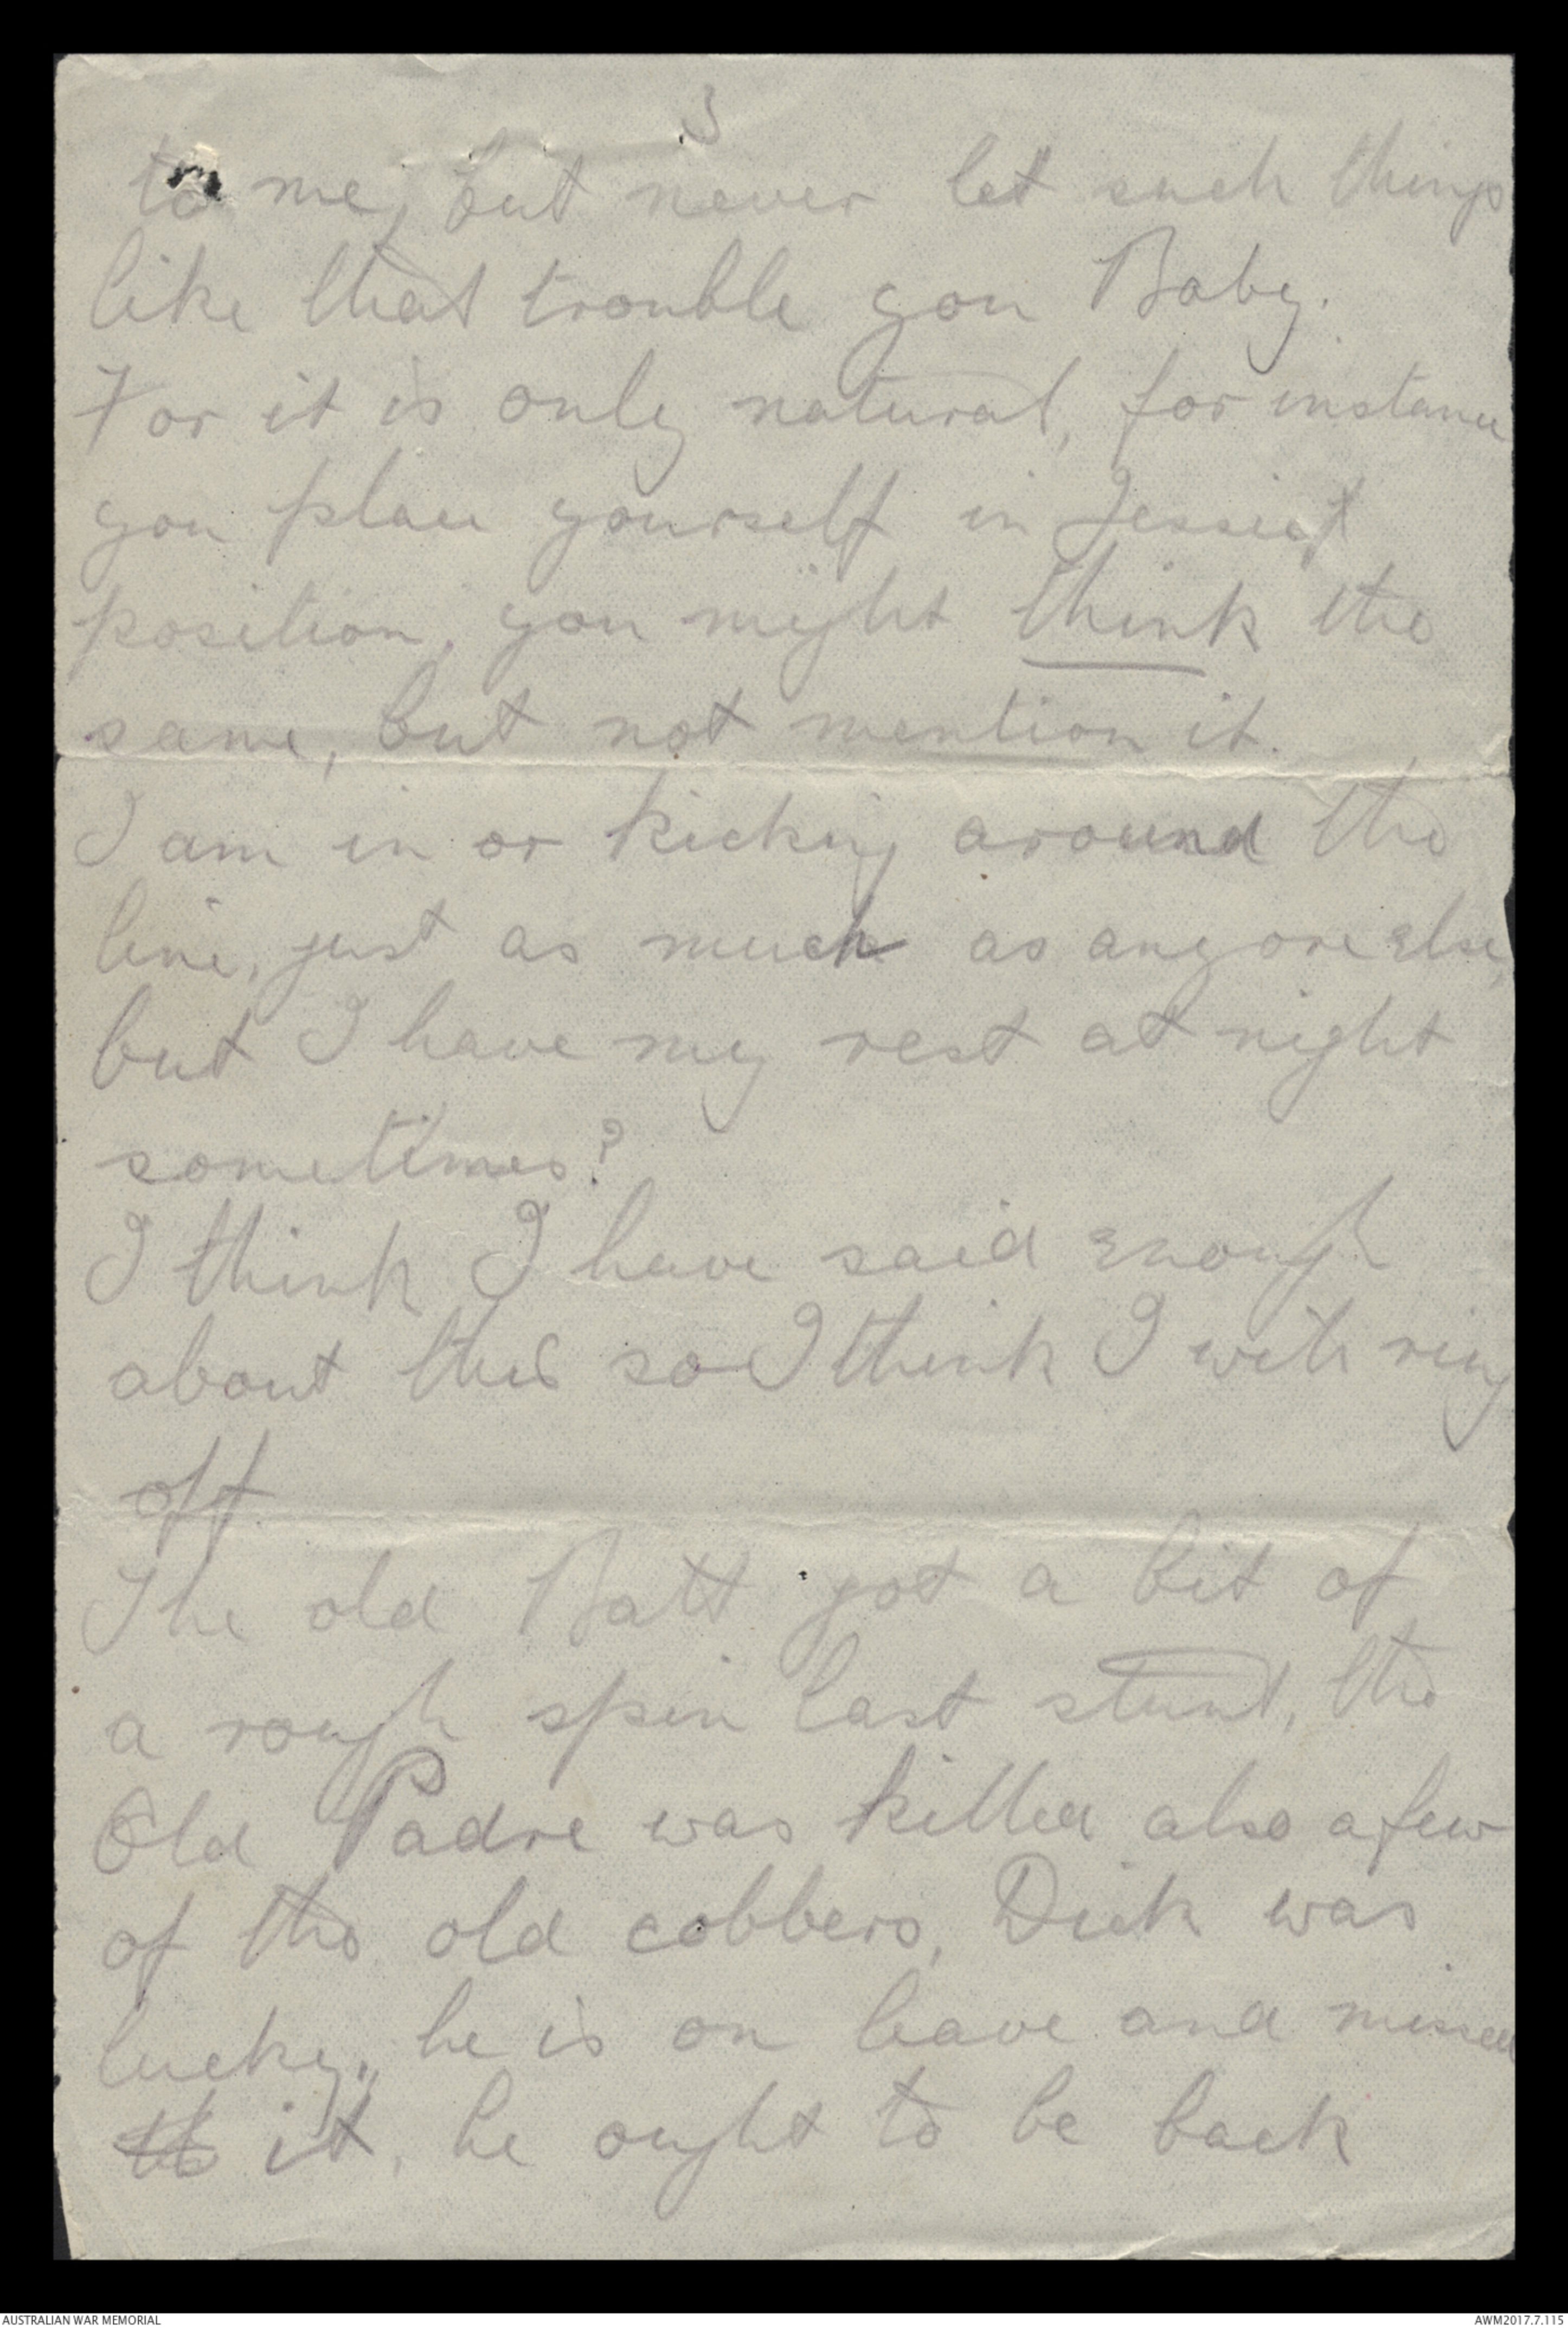 3
to me, but never let such things
like that trouble you Baby.
For it is only natural, for instance
you place yourself in Jessies
position, you might think the
same, but not mention it.
I am in or kicking around the
line, just as much as anyone else,
but I have my rest at night
sometimes?
I think I have said enough
about this so I think I will ring
off
The old Batt got a bit of
a rough spin last stunt, the
Old Padre was killed also a few
of the old cobbers, Dick was
lucky, he is on leave and missed
th it, he ought to be back
AUSTRALIAN WAR MEMORIAL
AWM2017.7.115